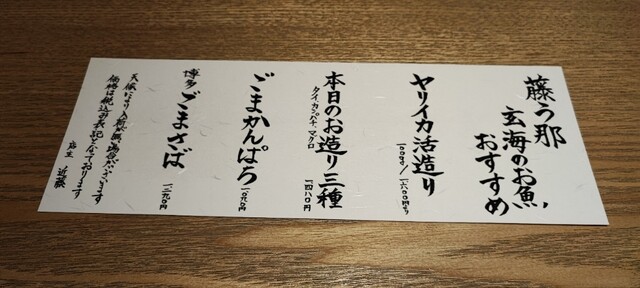 藤う那
玄海のお魚
おすすめ
ヤリイカ活造り
100g/一六〇〇円より
本日のお造り三種
タイ、カンパチ、マグロ
一四八〇円
ごまかんぱち
一〇九〇円
博多
ごまさば
天候により入荷が無い場合がございます
価格は税込み表記となっております
店主 近藤